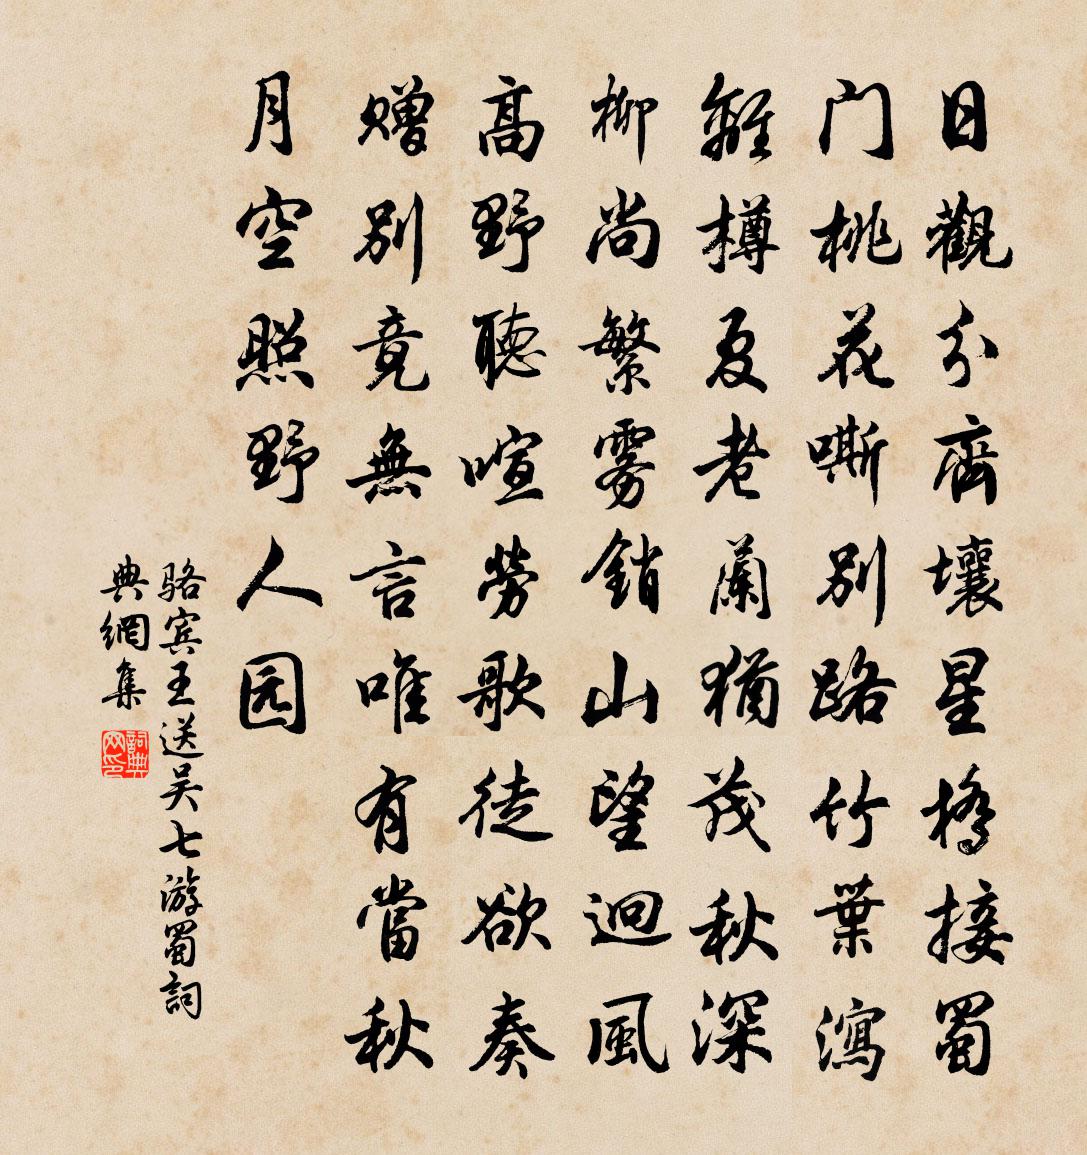 日觀分齊壤星橋接蜀
门桃花嘶別路竹葉瀉
離樽夏老蘭猶茂秋深
柳尚繁雾銷山望迥風
高野聽喧勞歌徒欲奏
赠別竟無言唯有當秋
月空照野人园
骆宾王送吴七游蜀詞
典網集
詞典网印